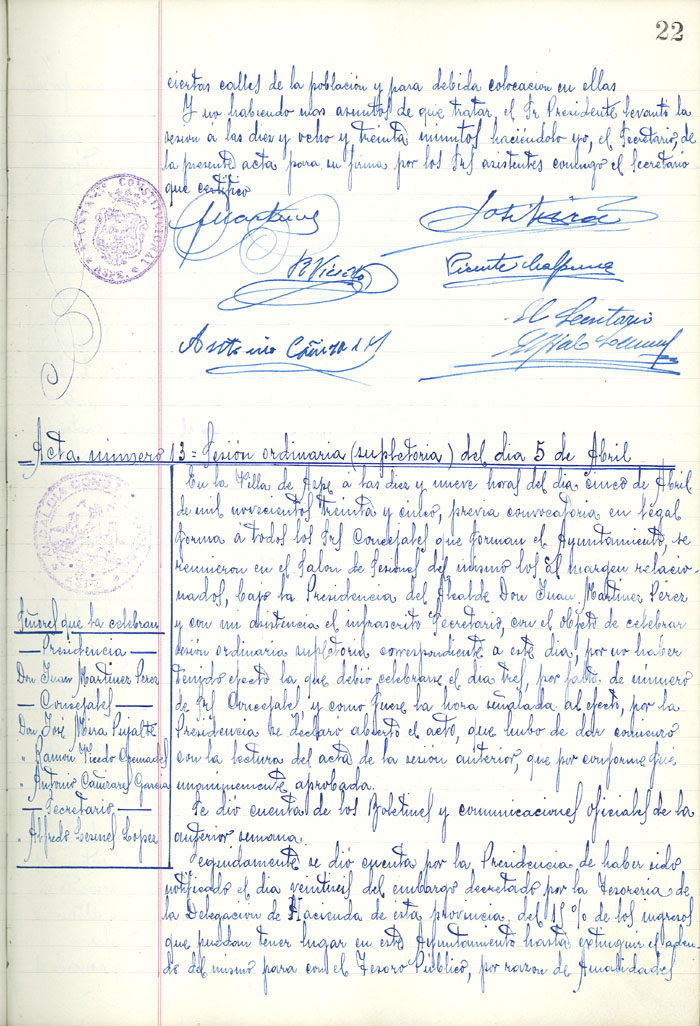 22
ciertas calles de la población y para debida colocacion en ellas
Y no habiendo mas asuntos de que tratar, el Sr Presidente levantó la
sesion a las diez y ocho y treinta minutos haciéndolo yo, el Secretario, de
la presente acta para su firma por los Srs asistentes conmigo el Secretario
que certifico
JMartinez
José Mira
R Vicedo
Vicente
Antonio Cañizares
El Secretario
Alfredo
CONSTITUCIONAL
ASPE
Acta número 13 = Sesión ordinaria (supletoria) del dia 5 de Abril
En la Villa de Aspe á las diez y nueve horas del dia cinco de Abril
de mil novecientos treinta y cinco, previa convocatoria en legal
forma á todos los Srs Concejales que forman el Ayuntamiento, se
reunieron en el Salon de Sesiones del mismo los al margen relacio-
nados, bajo la Presidencia del Alcalde Don Juan Martinez Perez
y con mi asistencia el infrascrito Secretario, con el objeto de celebrar
sesión ordinaria supletoria correspondiente a este dia, por no haber
tenido efecto la que debió celebrarse el dia tres, por falta de número
de Srs Concejales, y como fuese la hora señalada al efecto, por la
Presidencia se declaro abierto el acto, que hubo de dar comienzo
con la lectura del acta de la sesión anterior, que por conforme fué
unanimemente aprobada.
Se dio cuenta de los Boletines y comunicaciones oficiales de la
anterior semana.
Seguidamente se dió cuenta por la Presidencia de haber sido
notificado el dia veintiseis del embargo decretado por la Tesoreria de
la Delegacion de Hacienda de esta provincia, del 15% de los ingresos
que puedan tener lugar en este Ayuntamiento hasta extinguir el adeu-
do del mismo para con el Tesoro Público, por razon de Anualidades
Señores que la celebran
— Presidencia —
Don Juan Martinez Perez
— Concejales —
Don José Mira Pujalte
" Ramón Vicedo Cremades
" Antonio Cañizares Garcia
— Secretario —
" Alfredo Lopez